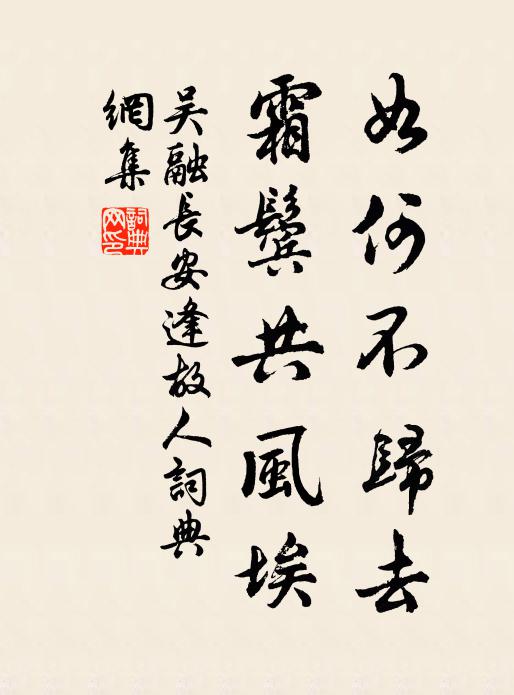 如何不歸去
霜鬢共風埃
吳融長安逢故人詞典
網集
詞典网印